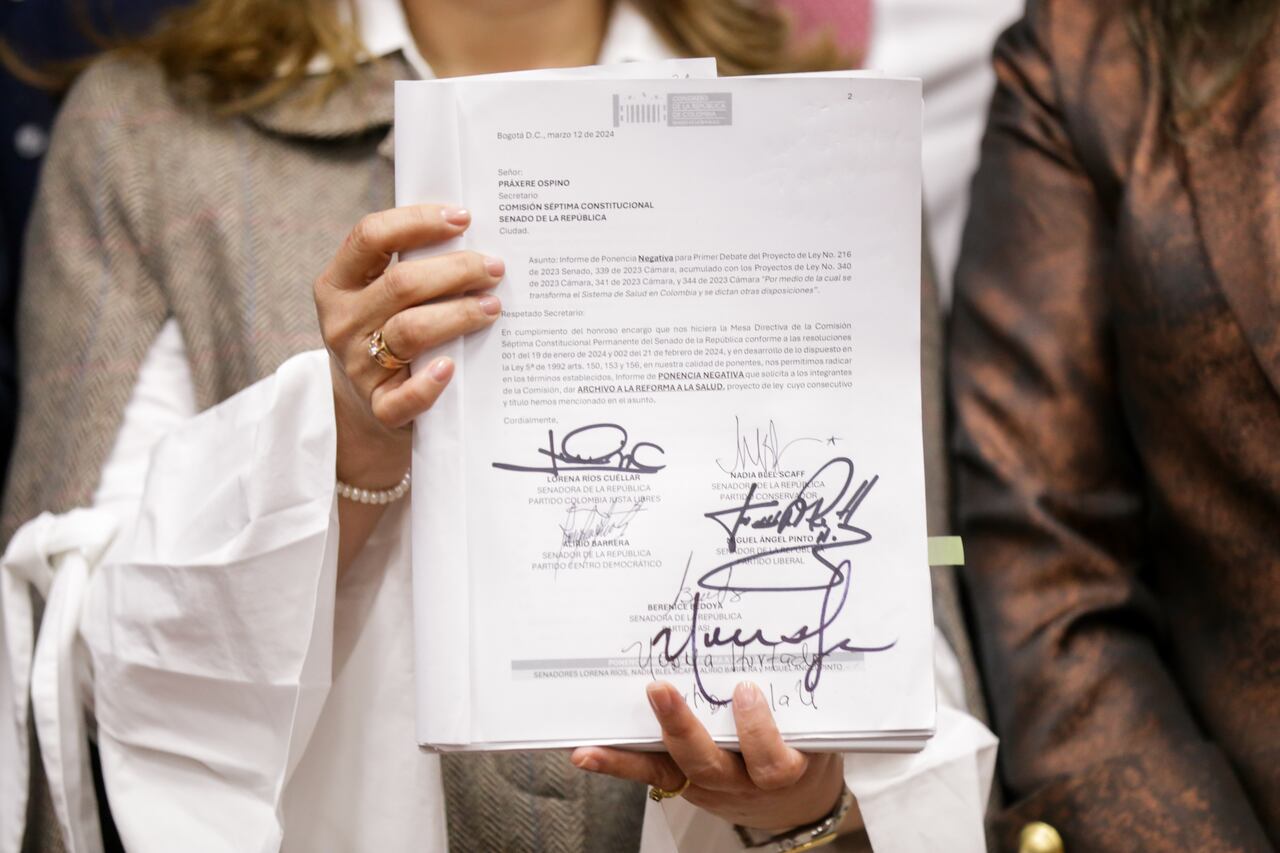 CONGRESO
DE LA REPÚBLICA
DE COLOMBIA
2
Bogotá D.C., marzo 12 de 2024
Señor:
PRÁXERE OSPINO
Secretario
COMISIÓN SÉPTIMA CONSTITUCIONAL
SENADO DE LA REPÚBLICA
Ciudad.
Asunto: Informe de Ponencia Negativa para Primer Debate del Proyecto de Ley No. 216
de 2023 Senado, 339 de 2023 Cámara, acumulado con los Proyectos de Ley No. 340
de 2023 Cámara, 341 de 2023 Cámara, y 344 de 2023 Cámara "Por medio de la cual se
transforma el Sistema de Salud en Colombia y se dictan otras disposiciones".
Respetado Secretario:
En cumplimiento del honroso encargo que nos hiciera la Mesa Directiva de la Comisión
Séptima Constitucional Permanente del Senado de la República conforme a las resoluciones
001 del 19 de enero de 2024 y 002 del 21 de febrero de 2024, y en desarrollo de lo dispuesto en
la Ley 5ª de 1992 arts. 150, 153 y 156, en nuestra calidad de ponentes, nos permitimos radicar
en los términos establecidos, Informe de PONENCIA NEGATIVA que solicita a los integrantes
de la Comisión, dar ARCHIVO A LA REFORMA A LA SALUD, proyecto de ley cuyo consecutivo
y título hemos mencionado en el asunto.
Cordialmente,
LORENA RÍOS CUÉLLAR
SENADORA DE LA REPÚBLICA
PARTIDO COLOMBIA JUSTA LIBRES
NADIA BLEL SCAFF
SENADORA DE LA REPÚBLICA
PARTIDO CONSERVADOR
ALIRIO BARRERA
SENADOR DE LA REPÚBLICA
PARTIDO CENTRO DEMOCRÁTICO
MIGUEL ÁNGEL PINTO
SENADOR DE LA REPÚBLICA
PARTIDO LIBERAL
BERENICE BEDOYA
SENADORA DE LA REPÚBLICA
PARTIDO ASI
SENADORES LORENA RÍOS, NADIA BLEL SCAFF, ALIRIO BARRERA y MIGUEL ÁNGEL PINTO